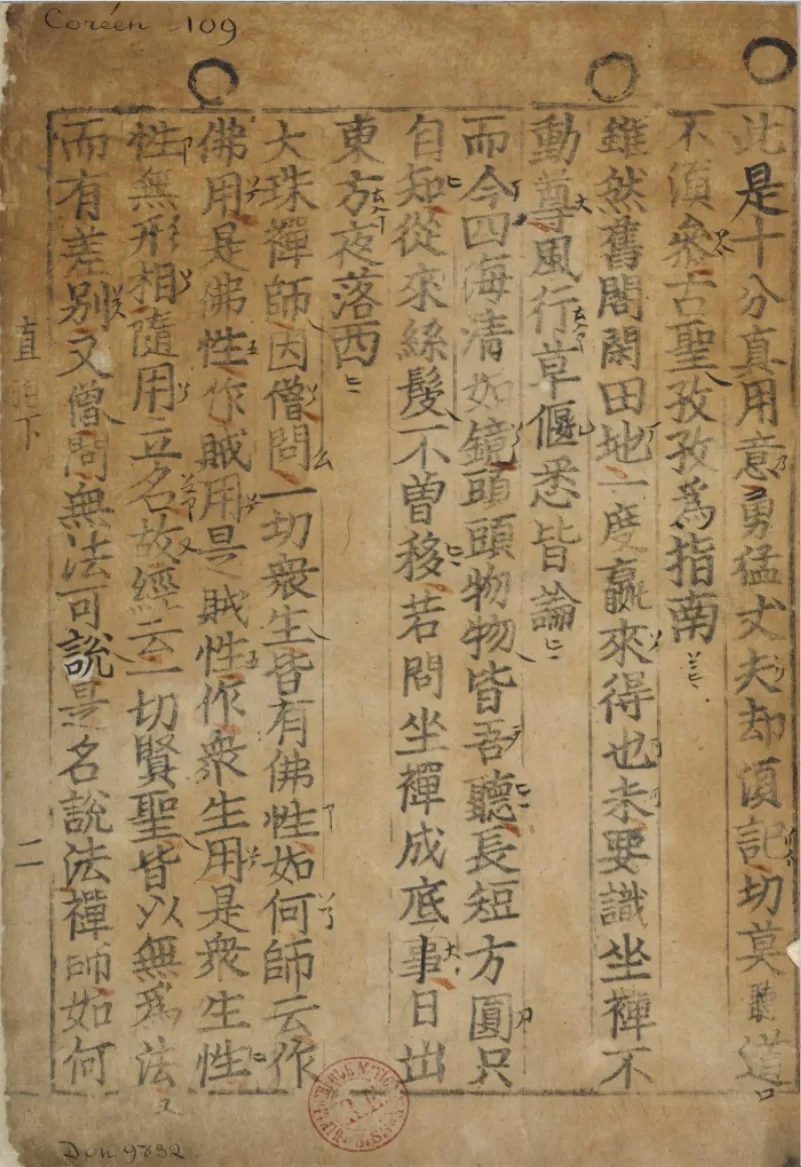 Coréen 109
此是十分真用意勇猛丈夫却須記切莫聽道
不須叅古聖孜孜爲指南
雖然舊閣閑田地一度贏來得也未要識坐禪不
動尊風行草偃悉皆論
而今四海清如鏡頭頭物物皆吾聽長短方圓只
自知從來絲髮不曾移若問坐禪成底事日出
東方夜落西
大珠禪師因僧問一切衆生皆有佛性如何師云作
佛用是佛性作賊用是賊性作衆生用是衆生性
性無形相隨用立名故經云一切賢聖皆以無爲法
而有差別又僧問無法可說是名說法禪師如何
直指下
二
Don 9832